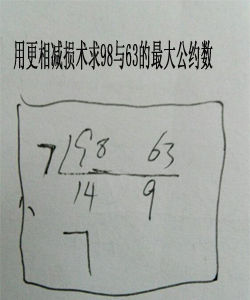 用更相减损术求98与63的最大公约数
7 98 63
14 9
7